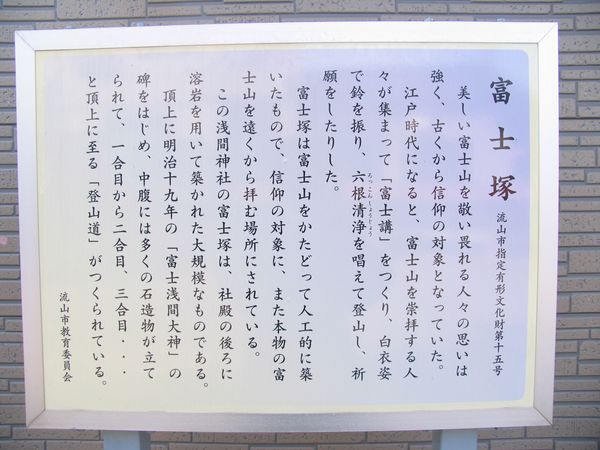 富士塚
流山市指定有形文化財第十五号
美しい富士山を敬い畏れる人々の思いは
強く、古くから信仰の対象となっていた。
江戸時代になると、富士山を崇拝する人
々が集まって「富士講」をつくり、白衣姿
で鈴を振り、六根清浄を唱えて登山し、祈
ろっこんしょうじょう
願をしたりした。
富士塚は富士山をかたどって人工的に築
いたもので、信仰の対象に、また本物の富
士山を遠くから拝む場所にされている。
この浅間神社の富士塚は、社殿の後ろに
溶岩を用いて築かれた大規模なものである。
頂上に明治十九年の「富士浅間大神」の
碑をはじめ、中腹には多くの石造物が立て
られて、一合目から二合目、三合目・・・
と頂上に至る「登山道」がつくられている。
流山市教育委員会